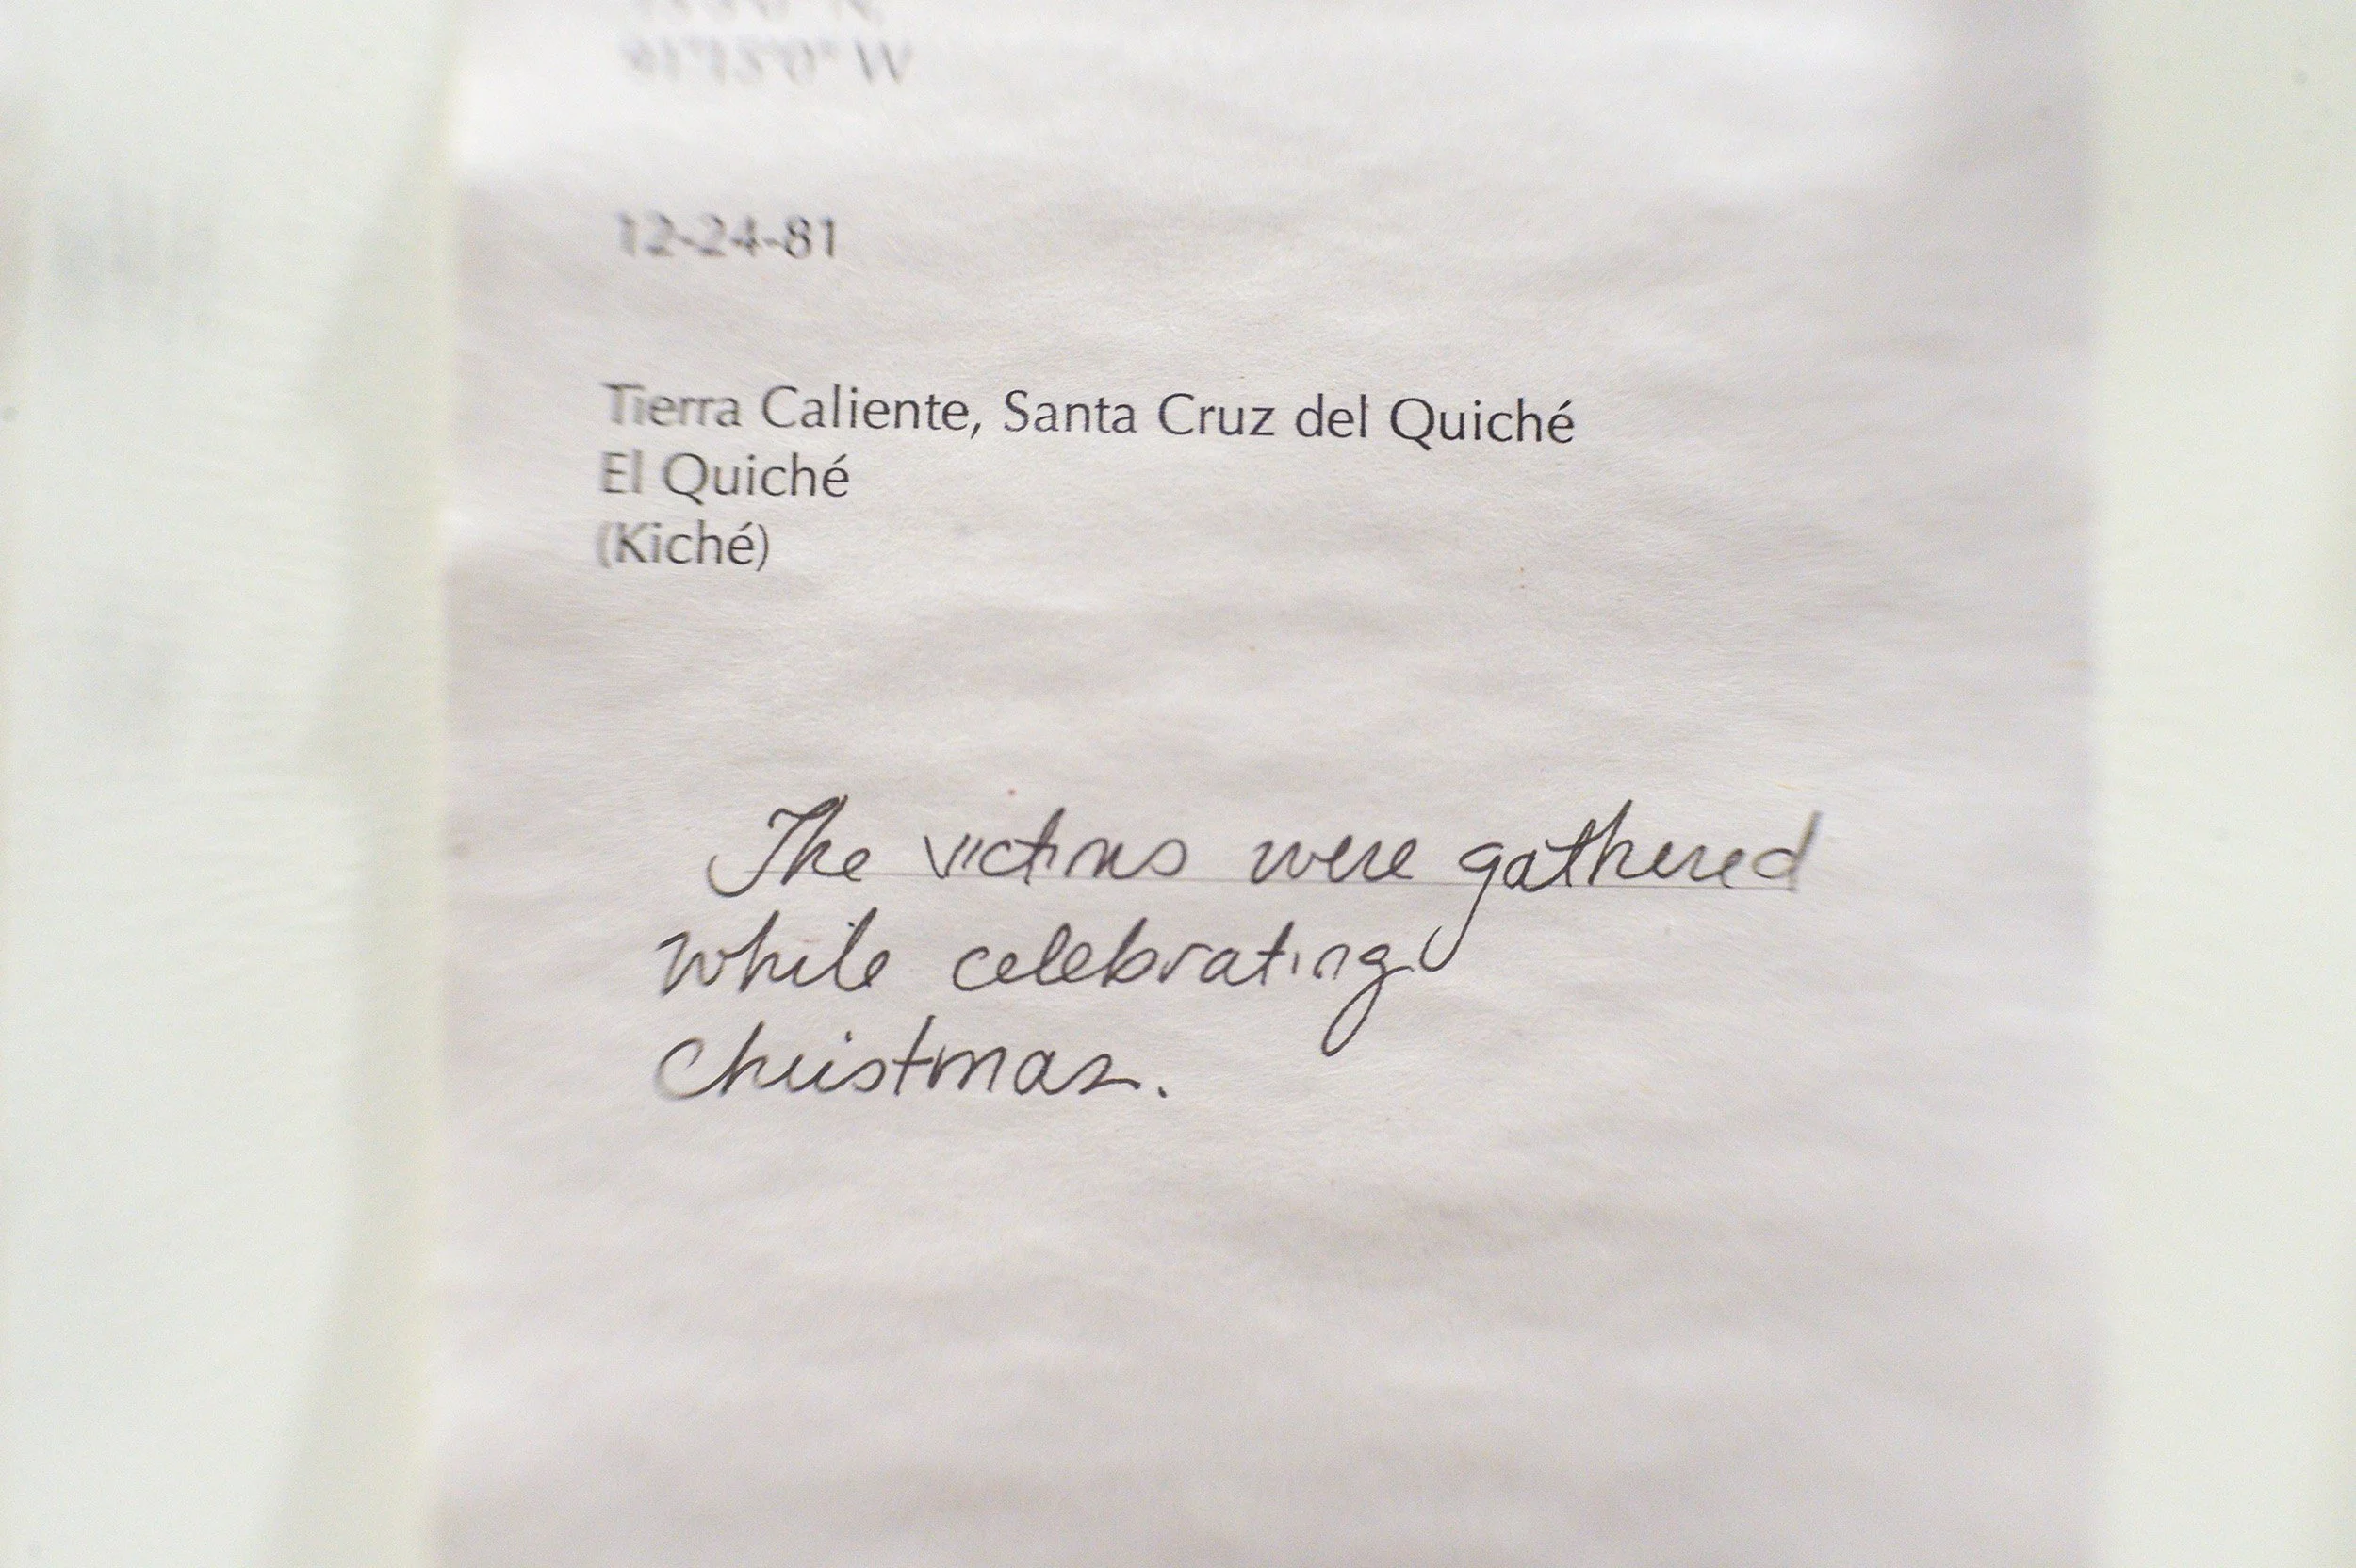 12-24-81
Tierra Caliente, Santa Cruz del Quiché
El Quiché
(Kiché)
The victims were gathered
while celebrating
Christmas.